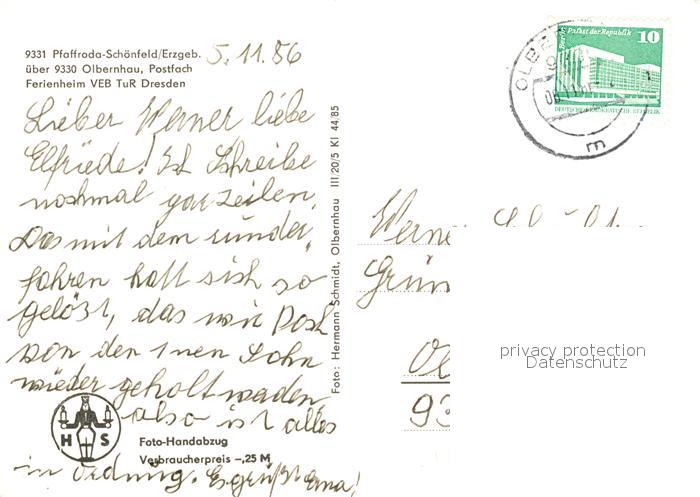 9331 Pfaffroda-Schönfeld/Erzgeb.
über 9330 Olbernhau, Postfach
Ferienheim VEB TuR Dresden
5.11.86
Lieber Werner liebe
Elfriede! Ich schreibe
nochmal par Zeilen.
Das mit dem runder,
fahren hatt sich so
gelößt, das wir doch
von den 1nen Sohn
wieder geholt waden
also ist alles
in Ordnung. Es grüßt Erna!
H S
Foto-Handabzug
Verbraucherpreis -,25 M
Foto: Hermann Schmidt, Olbernhau III/20/5 Kl 44/85
Palast der Republik
10
DEUTSCHE DEMOKRATISCHE REPUBLIK
OLBE
m
Werne
Grün
Ol
93
privacy protection
Datenschutz